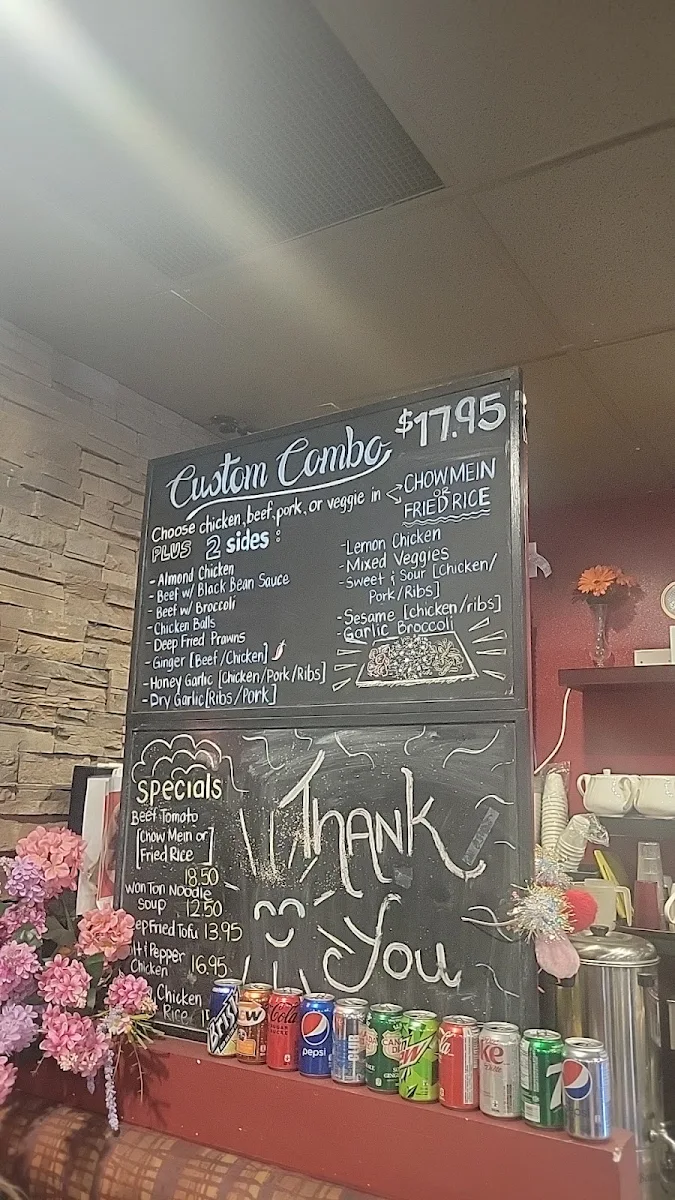 Custom Combo $17.95
Choose chicken, beef, pork, or veggie in < CHOW MEIN
OR
FRIED RICE
PLUS 2 sides:
- Almond Chicken
- Beef w/ Black Bean Sauce
- Beef w/ Broccoli
- Chicken Balls
- Deep Fried Prawns
- Ginger [Beef/Chicken]
- Honey Garlic [Chicken/Pork/Ribs]
- Dry Garlic [Ribs/Pork]
- Lemon Chicken
- Mixed Veggies
- Sweet & Sour [Chicken/
Pork/Ribs]
- Sesame [chicken/ribs]
- Garlic Broccoli
Specials
Beef Tomato
[Chow Mein or]
[Fried Rice]
18.50
Won Ton Noodle
Soup 12.50
ep Fried Tofu 13.95
lt & Pepper
Chicken 16.95
Chicken
Rice
THANK
You
Cola
pepsi
ke
7